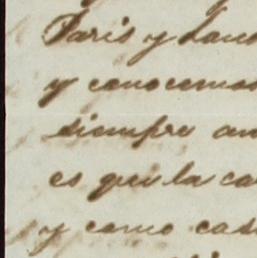 Paris y Lond
y conocemos
siempre am
es que la ca
y como cas